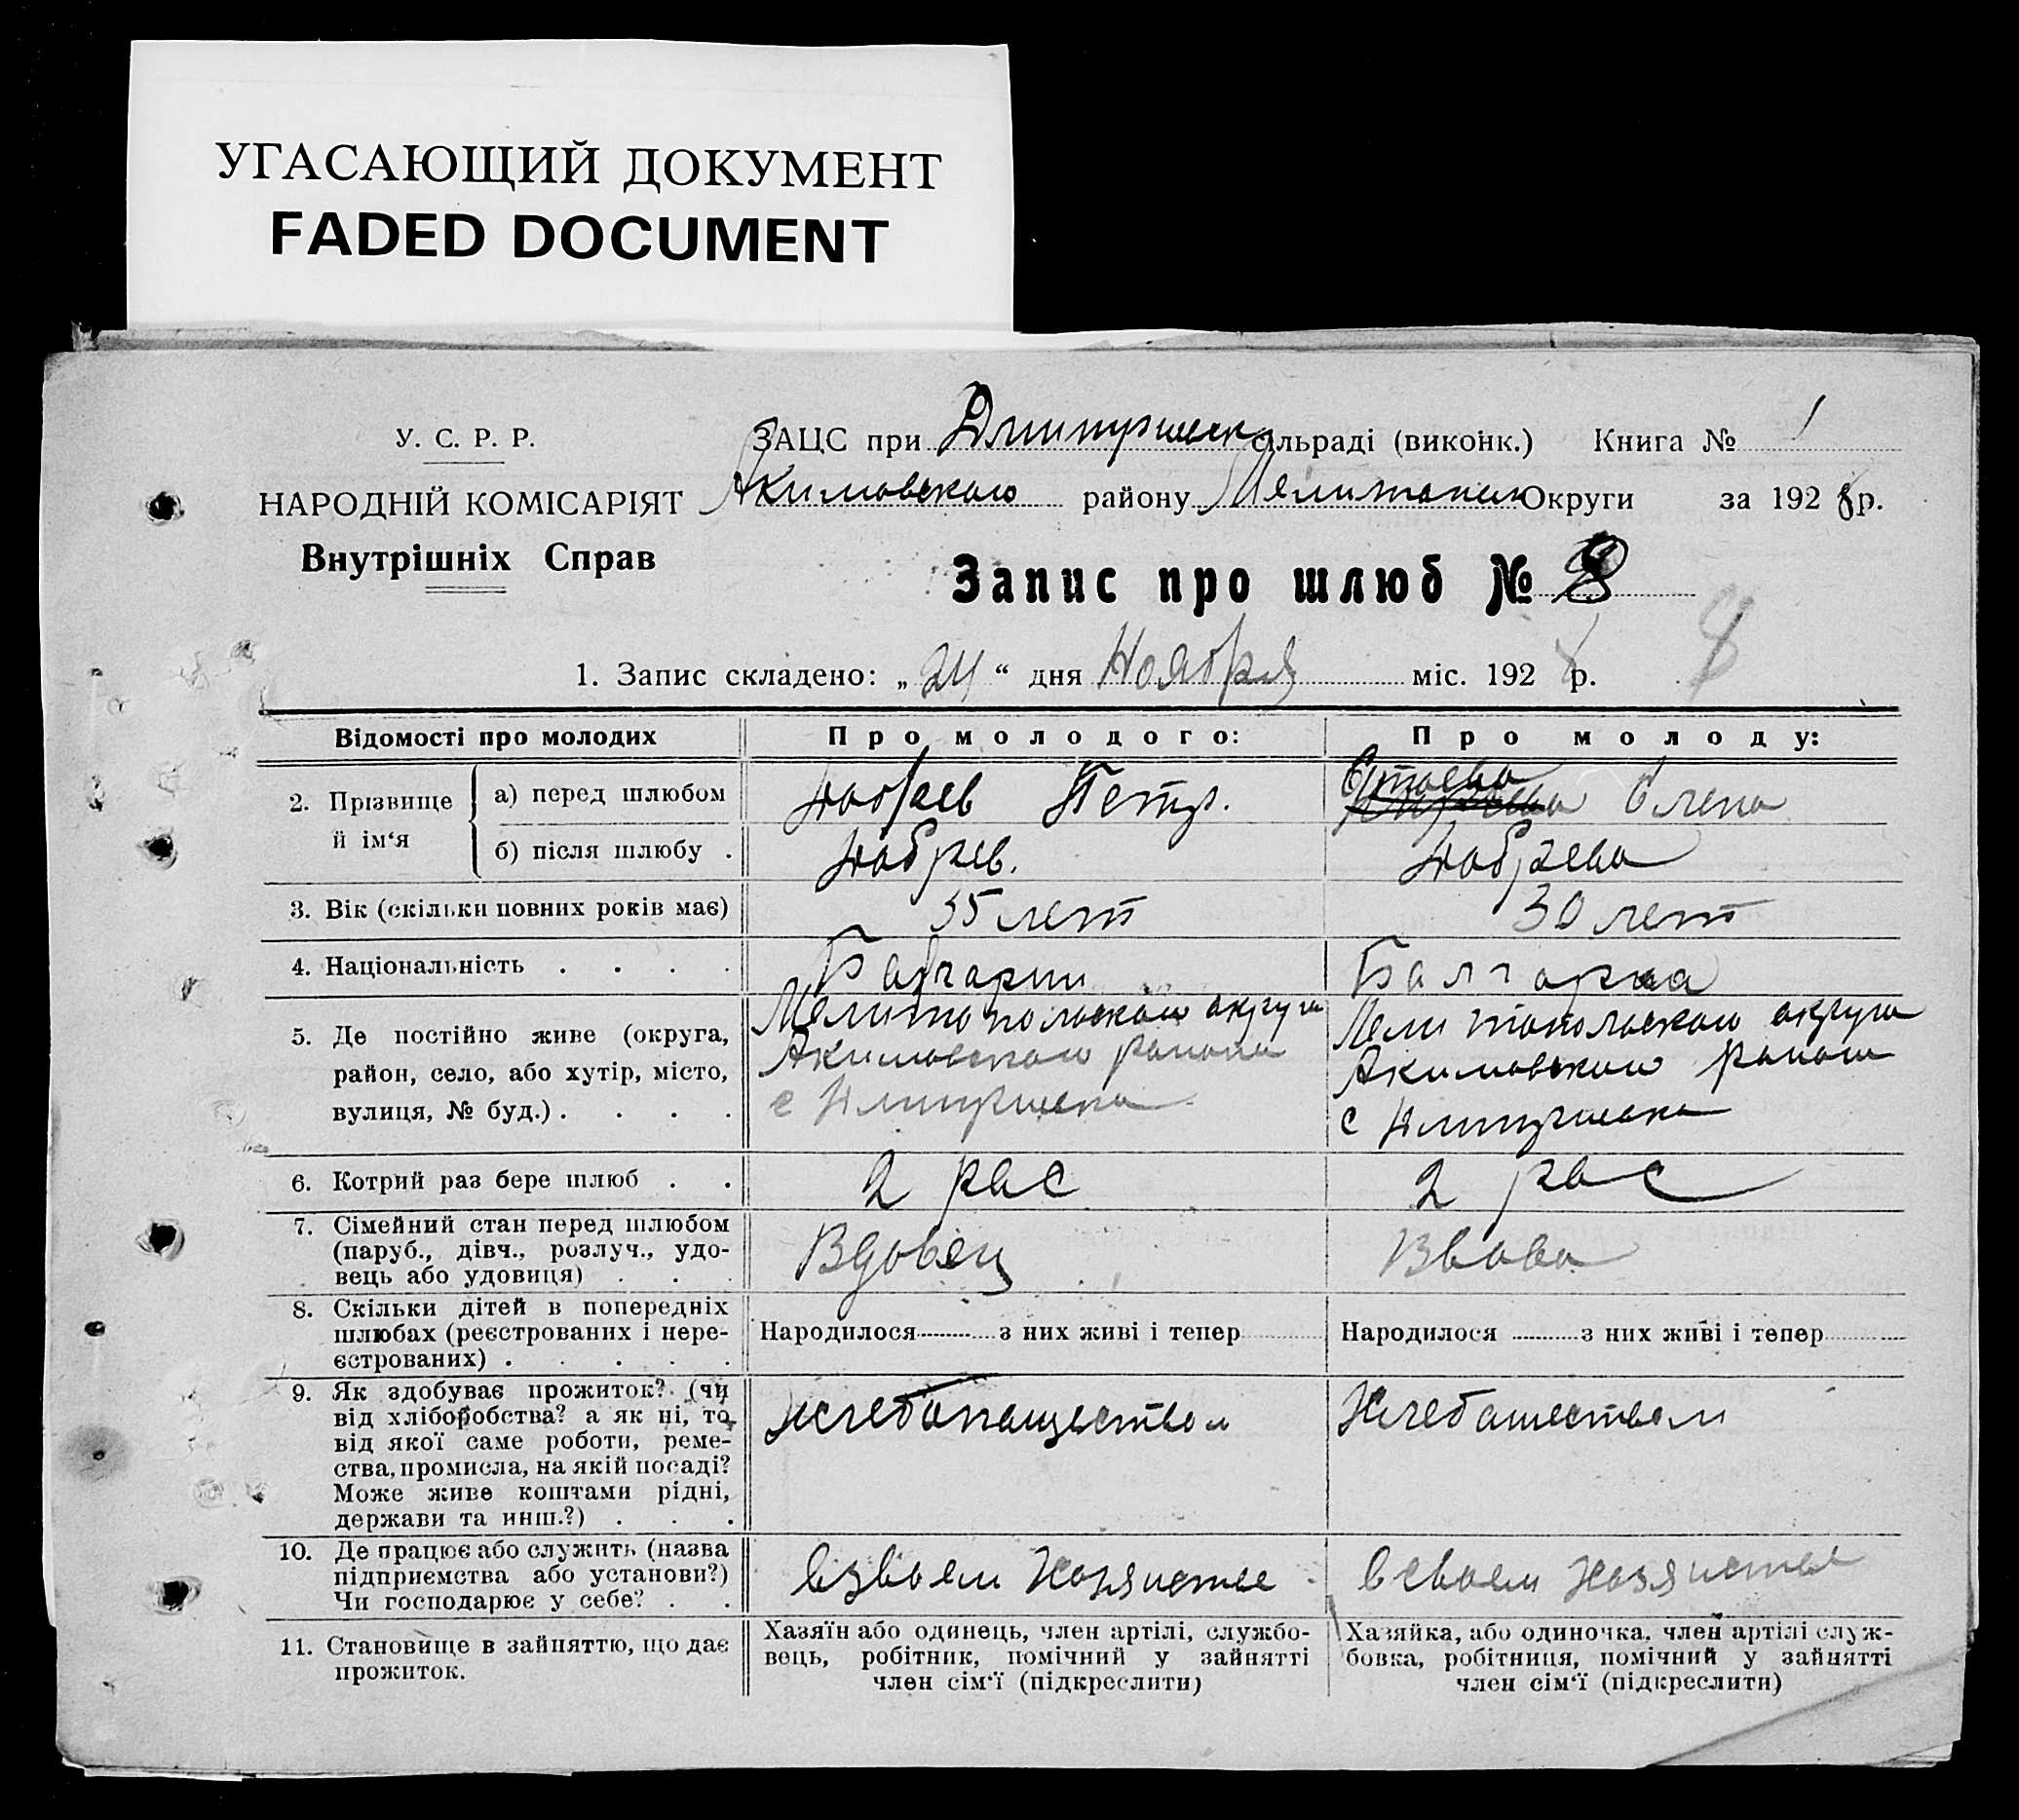 УГАСАЮЩИЙ ДОКУМЕНТ
FADED DOCUMENT
У. С. Р. Р.
ЗАЦС при сільраді (виконк.) Книга № 1
НАРОДНІЙ КОМІСАРІЯТ
Акимовского району Округи за 1928 р.
Внутрішніх Справ
Запис про шлюб № 8
8
1. Запис складено: „24“ дня Ноября міс. 1928 р.
Відомості про молодих
Про молодого:
Про молоду:
2. Прізвище й ім‘я
а) перед шлюбом
Петр.
Олена
б) після шлюбу .
3. Вік (скільки повних років має)
35 лет
30 лет
4. Національність . . . .
Балгарка
5. Де постійно живе (округа,
район, село, або хутір, місто,
вулиця, № буд.) . . . .
Мелитопольского округа
Акимовского района
с
Мелитопольского округа
Акимовского района
с
6. Котрий раз бере шлюб . .
2 рас
2 рас
7. Сімейний стан перед шлюбом
(паруб., дівч., розлуч., удо-
вець або удовиця) . . .
Вдовец
8. Скільки дітей в попередніх
шлюбах (реєстрованих і нере-
єстрованих) . . . . .
Народилося з них живі і тепер
Народилося з них живі і тепер
9. Як здобуває прожиток? (чи
від хліборобства? а як ні, то
від якої саме роботи, реме-
ства, промисла, на якій посаді?
Може живе коштами рідні,
держави та инш.?) . . .
10. Де працює або служить (назва
підприємства або установи?)
Чи господарює у себе? . .
11. Становище в зайняттю, що дає
прожиток.
Хазяїн або одинець, член артілі, службо-
вець, робітник, помічний у зайнятті
член сім‘ї (підкреслити)
Хазяйка, або одиночка, член артілі служ-
бовка, робітниця, помічний у зайнятті
член сім‘ї (підкреслити)